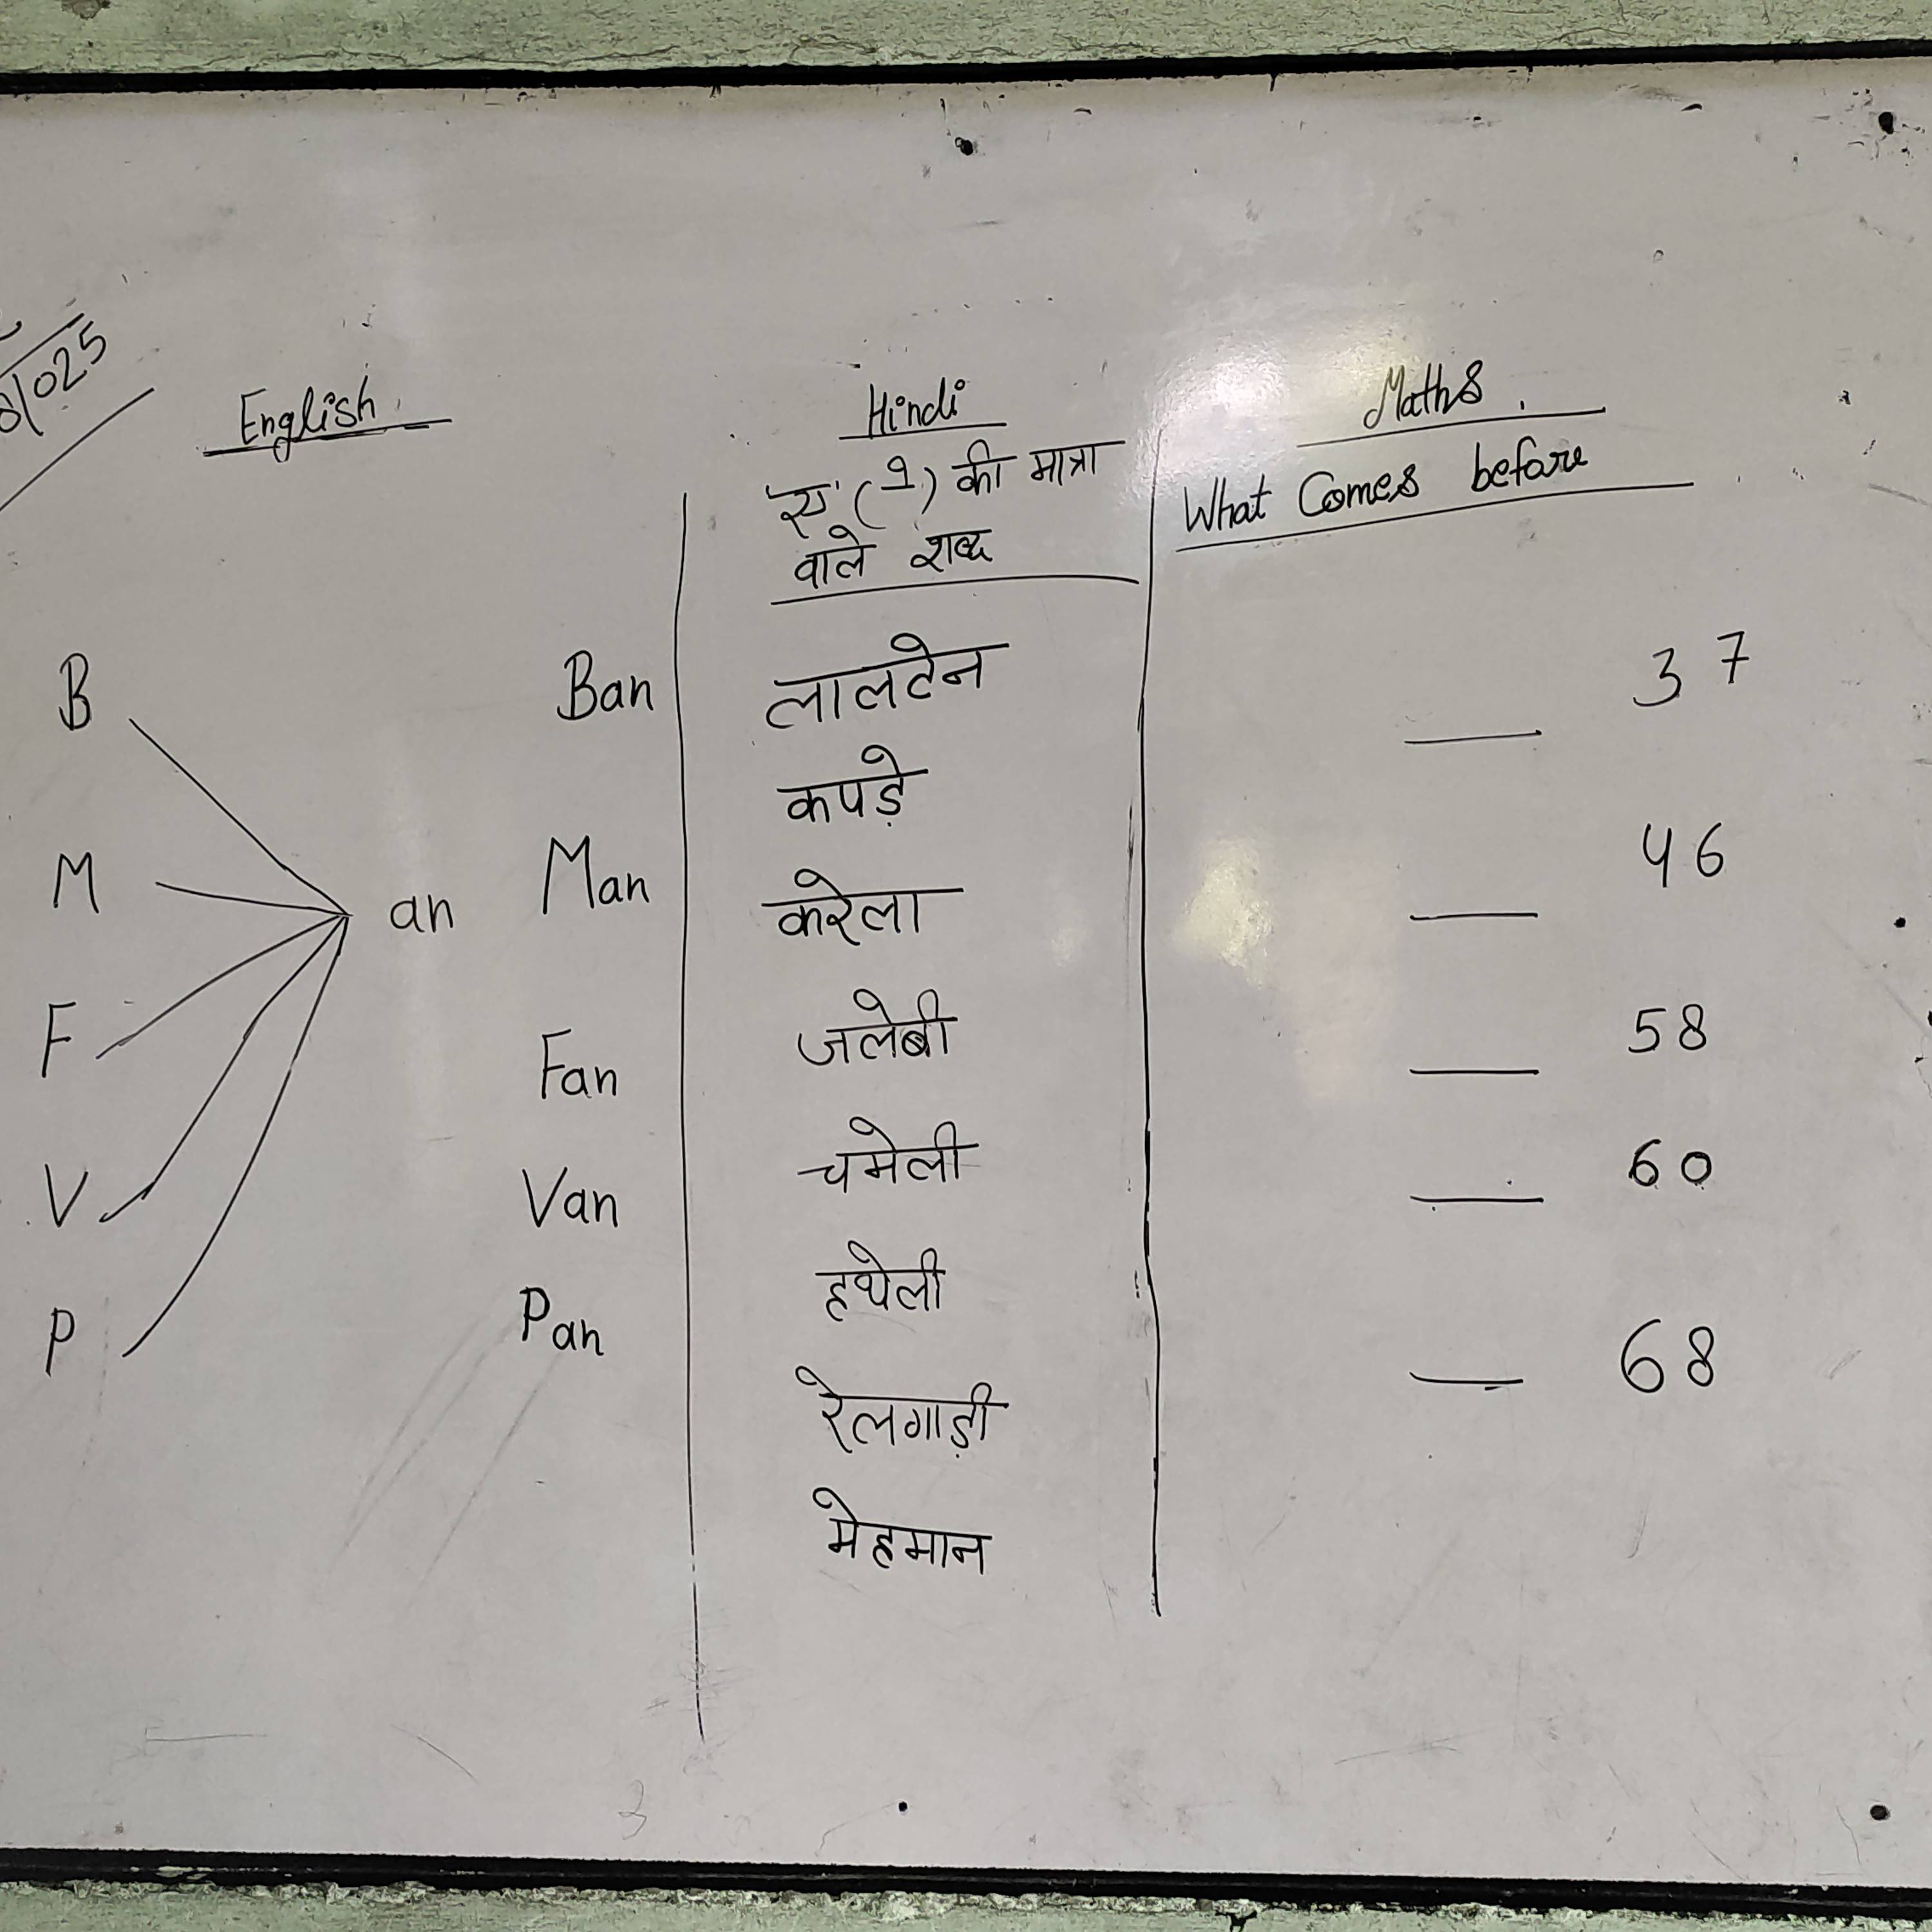 English
B
M
F
V
P
an
Ban
Man
Fan
Van
Pan
Hindi
'ए' ( े ) की मात्रा
वाले शब्द
लालटेन
कपड़े
करेला
जलेबी
चमेली
हथेली
रेलगाड़ी
मेहमान
Maths
What Comes before
___ 37
___ 46
___ 58
___ 60
___ 68